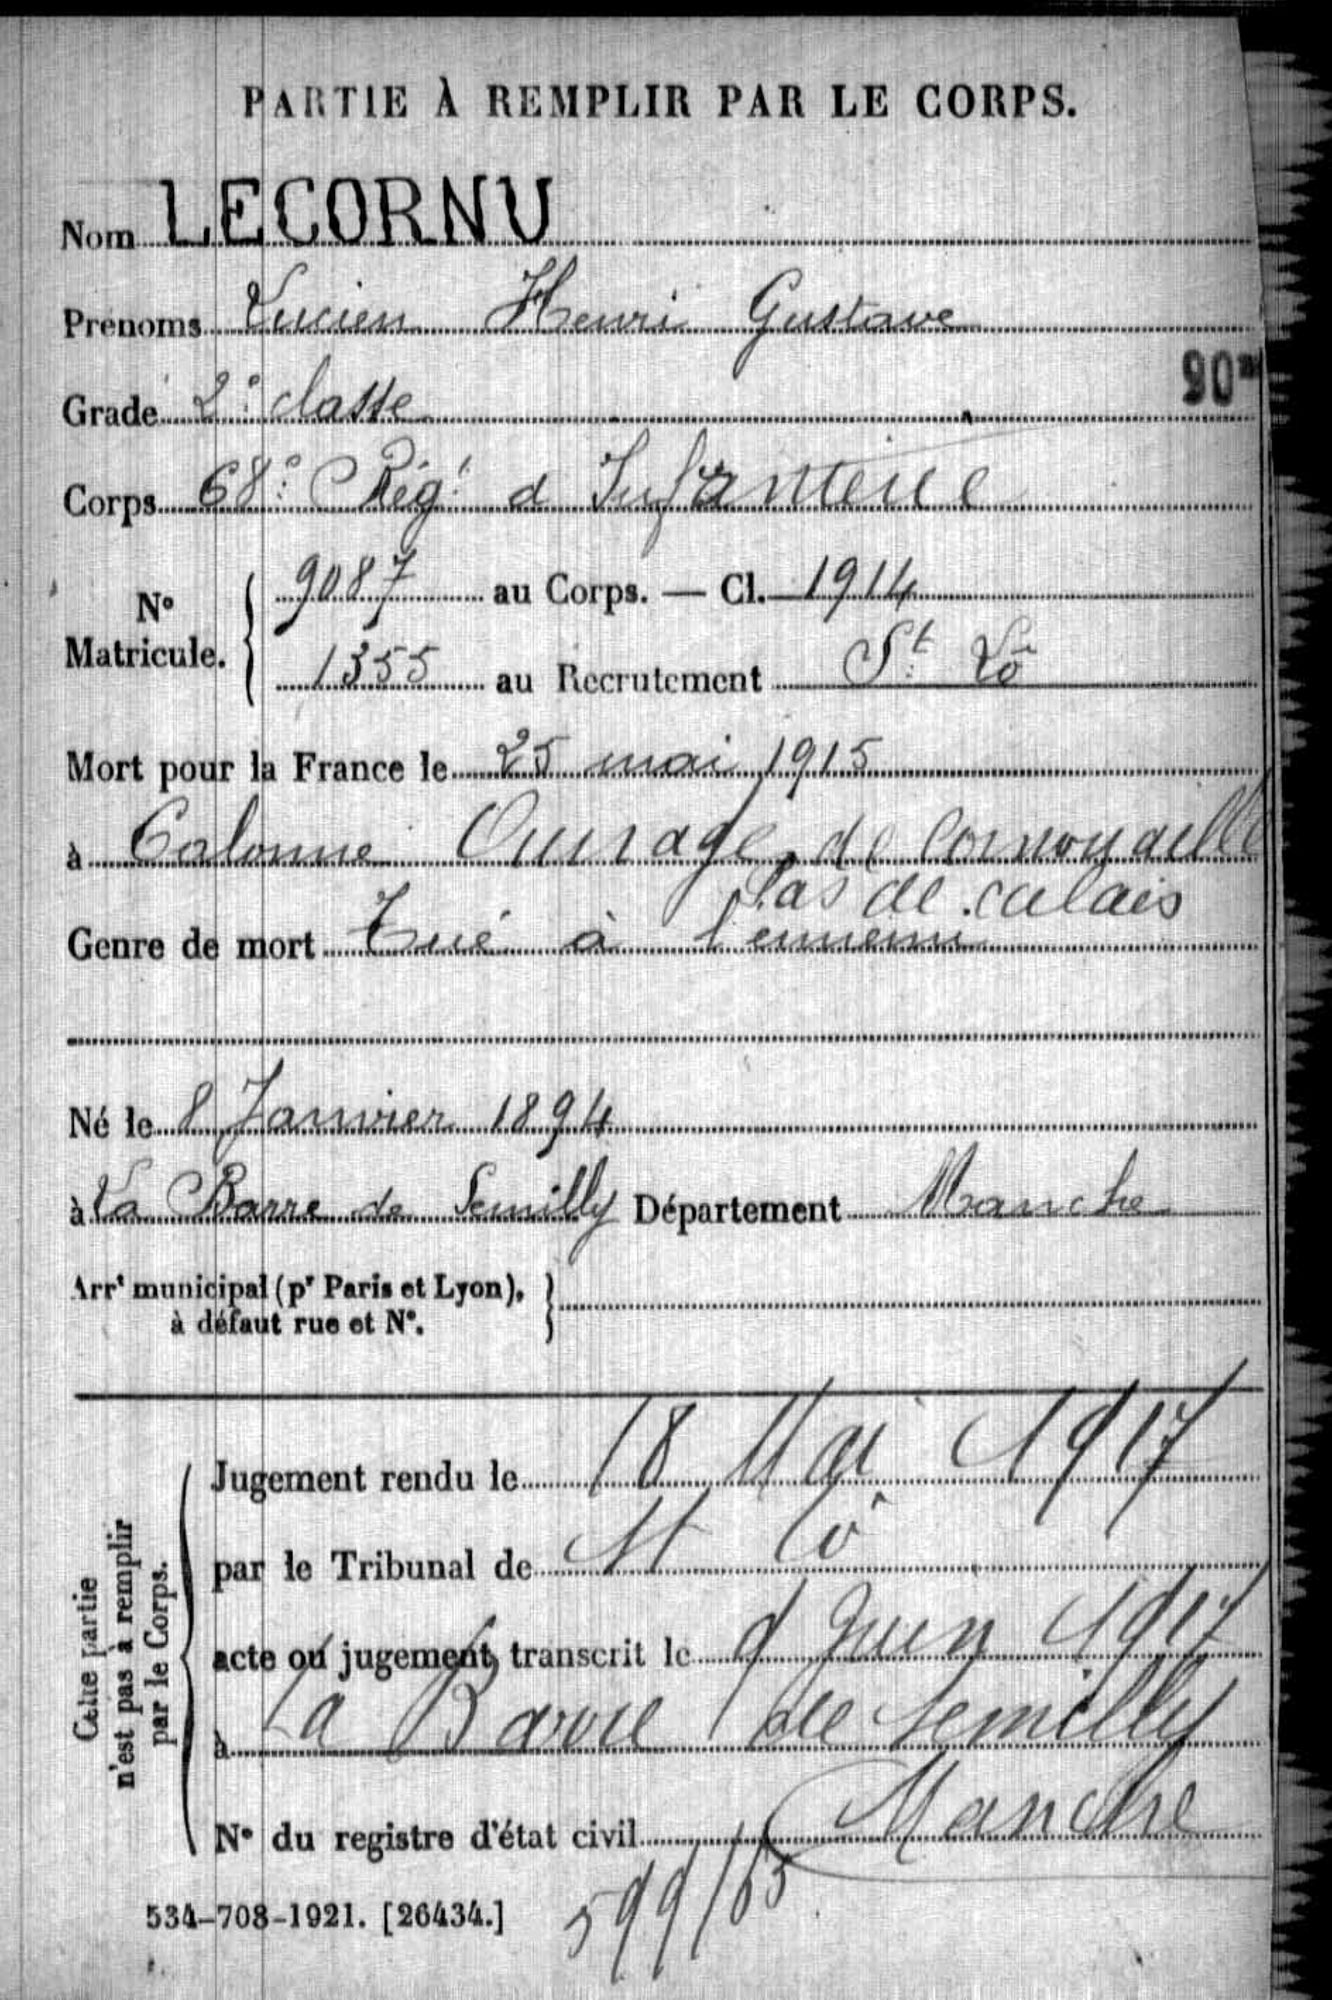 PARTIE À REMPLIR PAR LE CORPS.
Nom LECORNU
Prénoms Lucien Henri Gustave
90
Grade 2e classe
Corps 68e Régt d Infanterie
No Matricule. 9087 au Corps. — Cl. 1914
1355 au Recrutement St Lô
Mort pour la France le 25 mai 1915
à Calonne Ouvrage de Cornouaille
Pas de calais
Genre de mort Tué à l'ennemi
Né le 8 Janvier 1894
à La Barre de Semilly Département Manche
Arrt municipal (pr Paris et Lyon),
à défaut rue et No.
Cette partie
n'est pas à remplir
par le Corps.
Jugement rendu le 18 Mai 1917
par le Tribunal de St Lô
acte ou jugement transcrit le 9 Juin 1917
à La Barre de Semilly
Manche
No du registre d'état civil
534-708-1921. [26434.]
599/65